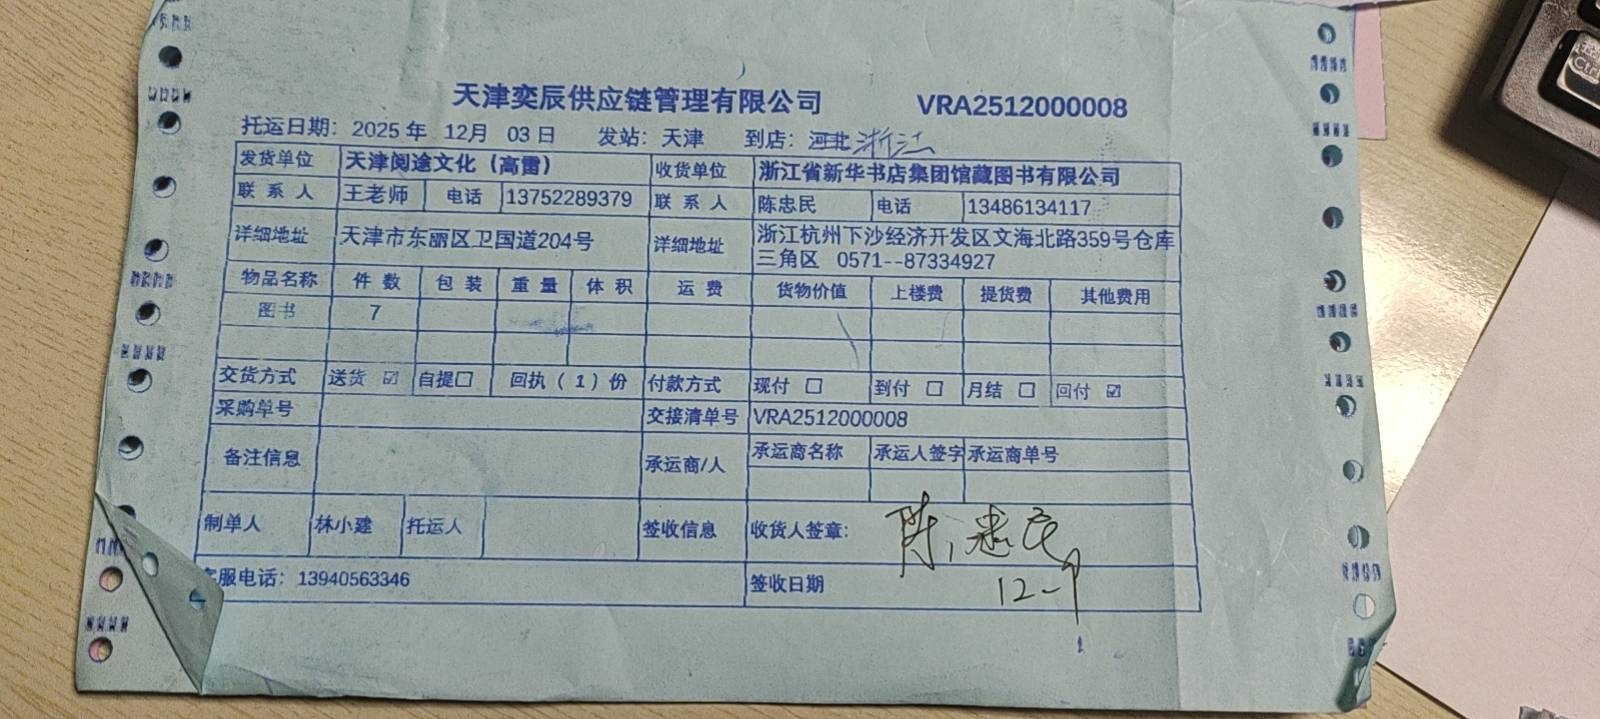 天津奕辰供应链管理有限公司 VRA2512000008
托运日期：2025 年 12月 03 日 发站：天津 到店：河北 浙江
发货单位 天津阅途文化（高雷） 收货单位 浙江省新华书店集团馆藏图书有限公司
联 系 人 王老师 电话 13752289379 联 系 人 陈忠民 电话 13486134117
详细地址 天津市东丽区卫国道204号 详细地址 浙江杭州下沙经济开发区文海北路359号仓库
三角区 0571--87334927
物品名称 件 数 包 装 重 量 体 积 运 费 货物价值 上楼费 提货费 其他费用
图书 7
交货方式 送货 ☑ 自提☐ 回执（ 1 ）份 付款方式 现付 ☐ 到付 ☐ 月结 ☐ 回付 ☑
采购单号 交接清单号 VRA2512000008
备注信息 承运商/人 承运商名称 承运人签字 承运商单号
制单人 林小建 托运人 签收信息 收货人签章： 陈忠民
客服电话：13940563346 签收日期 12-9
Ctrl